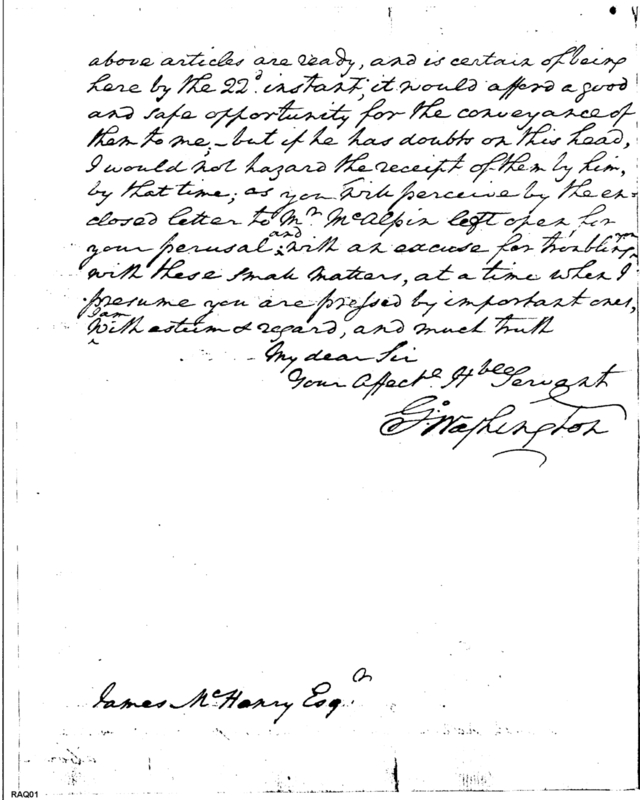 above articles are ready, and is certain of being
here by the 22d. instant, it would afford a good
and safe opportunity for the conveyance of
them to me;—but if he has doubts on this head,
I would not hazard the receipt of them by him,
by that time; as you will perceive by the en-
closed letter to Mr. McAlpin left open, for
your perusal; and with an excuse for troubling you
with these small matters, at a time when I
presume you are pressed by important ones,
I am
With esteem & regard, and much truth
My dear Sir
Your Affecte. Hble Servant
Go. Washington
James McHenry Esqr.
RAQ01